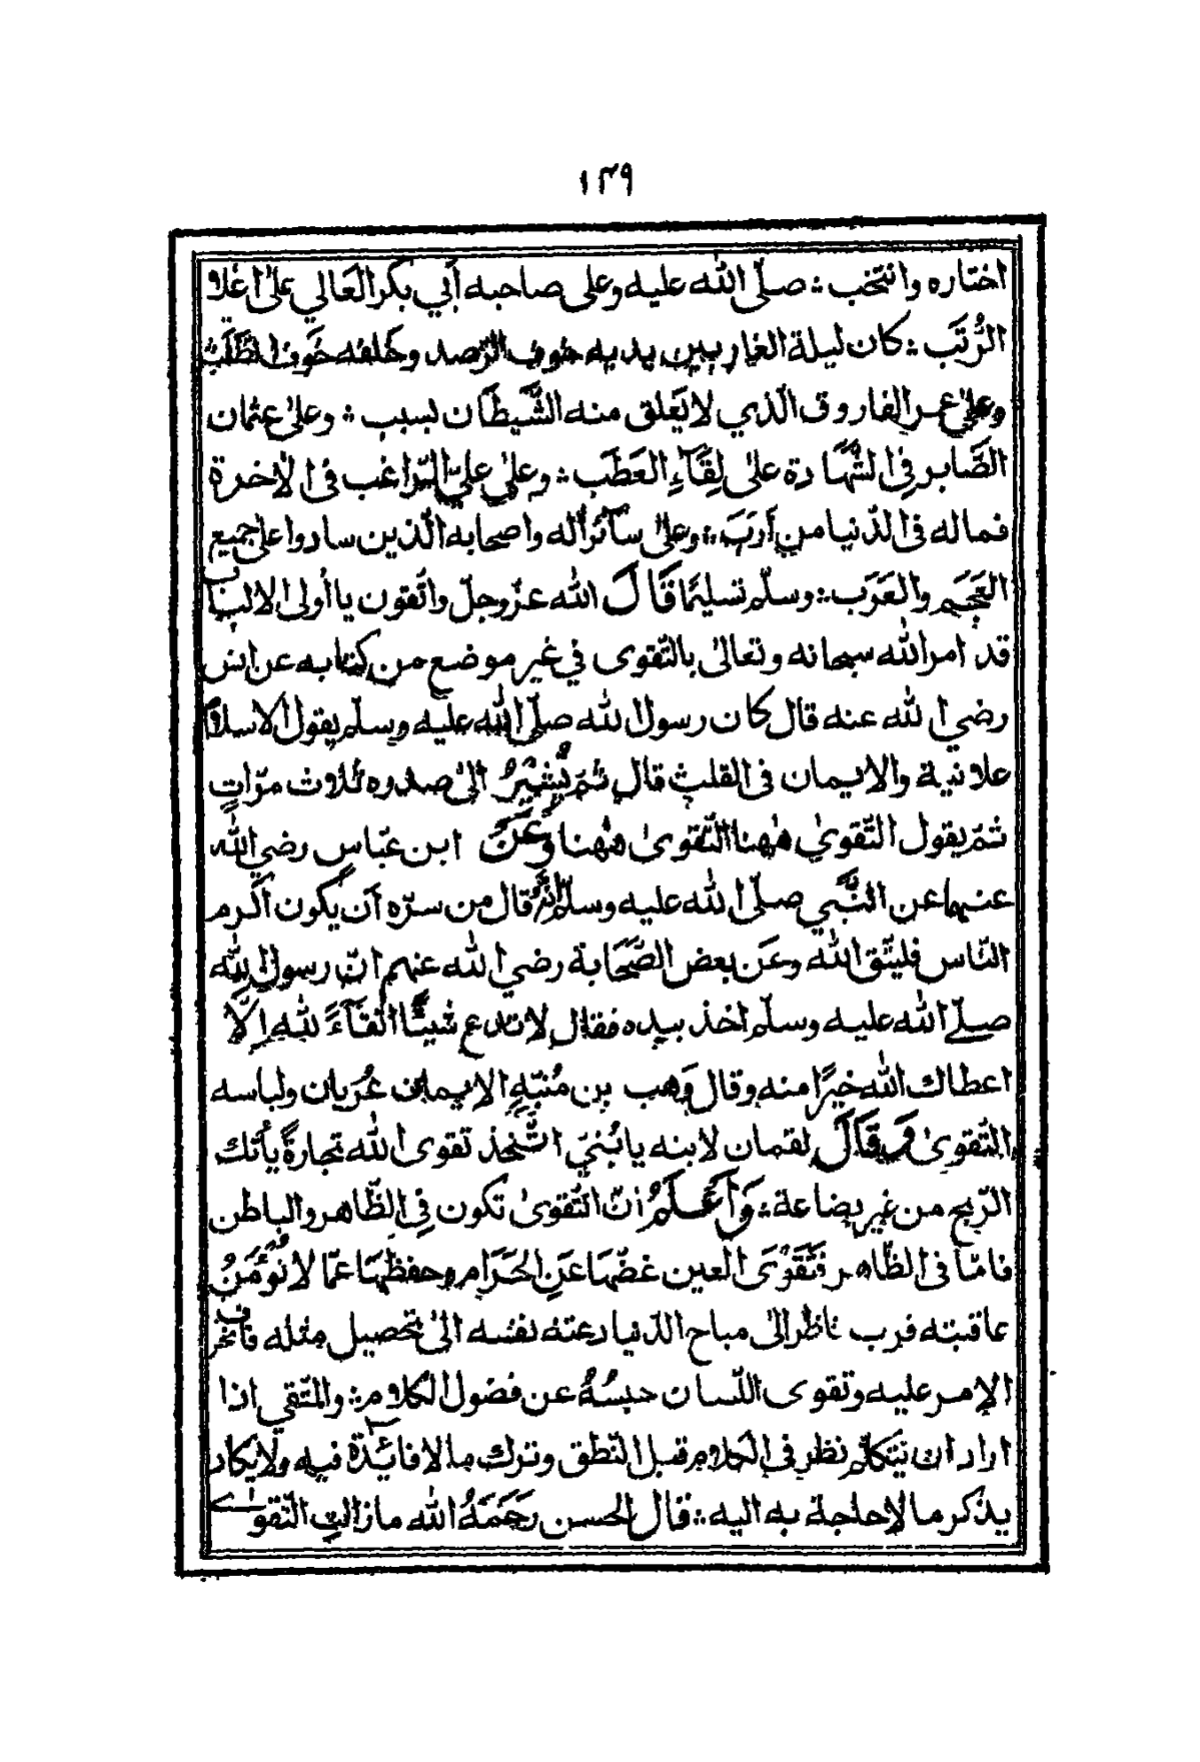 ١٣٩
اختاره وانتخب ؞ صلّى الله عليه وعلى صاحبه أبي بكر العَالي على اَعْلا
الرُّتَب ؞ كان ليلة الغار بين يديه خوف الرّصد وخلفه خَوف الطَّلَب
وعلىٰ عمر الفاروق الّذي لا يَعْلق منه الشَّيطَان بسبب ؞ وعلىٰ عثمان
الصَّابر فِي الشَّهَادة علىٰ لِقَآءِ العَطَب ؞ وعلىٰ عليّ الرّاغب فى الاٰخرة
فماله فى الدّنيا من أَرَبَ ؞ وعلىٰ سآئر أله واصحابه الّذين سادوا على جميع
العَجَم والعَرَب ؞ وسلّم تسليمًا قَالَ الله عزّوجلّ واتّقون يا أولى الالباب
قد امر الله سبحانه وتعالىٰ بالتّقوى في غير موضع من كتابه عن انس
رضي الله عنه قال كان رسول الله صلّى الله عليه وسلّم يقول الاسلام
علانية والايمان فى القلب قال ثمّ يُشيْرُ الىٰ صدره ثلاث مرّاتٍ
ثمّ يقول التّقوىٰ هٰهنا التّقوىٰ هٰهنا وَعَنْ ابن عبّاسٍ رضي الله
عنهما عن النَّبي صلّى الله عليه وسلّم أنّه قال من سرّه أن يكون أكرم
النّاس فليتّق الله وعَن بعض الصّحَابة رضي الله عنهم انّ رسول الله
صلّى الله عليه وسلّم اخذ بيده فقال لا تدع شيئًا اتّقآءً للهِ اِلَّا
اعطاك الله خيرًا منه وقال وَهب بن مُنبّهٍ الايمان عُريان ولباسه
التّقوىٰ وَقَالَ لقمان لابنه يا بُنيّ اتّخذ تقوى الله تجارةً يأتك
الرّبح من غير بضاعة ؞ وَاَعْلَمُ انّ التّقوىٰ تكون فِي الظّاهر والباطن
فامّا فى الظّاهر فَتَقْوَى العين غضّهَا عَنِ الحَرَام وحفظهَا عمّا لا تُؤْمَنُ
عاقبته فرب ناظر الىٰ مباح الدّنيا دعته نفسه الىٰ تحصيل مثله فانخرف
الامر عليه وتقوى اللّسان حبسُهُ عن فضول الكلام ؞ والمتّقي اذا
اراد ان يتكلّم نظر فى الكلام قبل النّطق وترك ما لا فائِدَة فيه ولا يكاد
يذكر ما لا حاجة به اليه ؞ قال الحسن رَحِمَهُ الله ما زالتِ التّقوىٰ